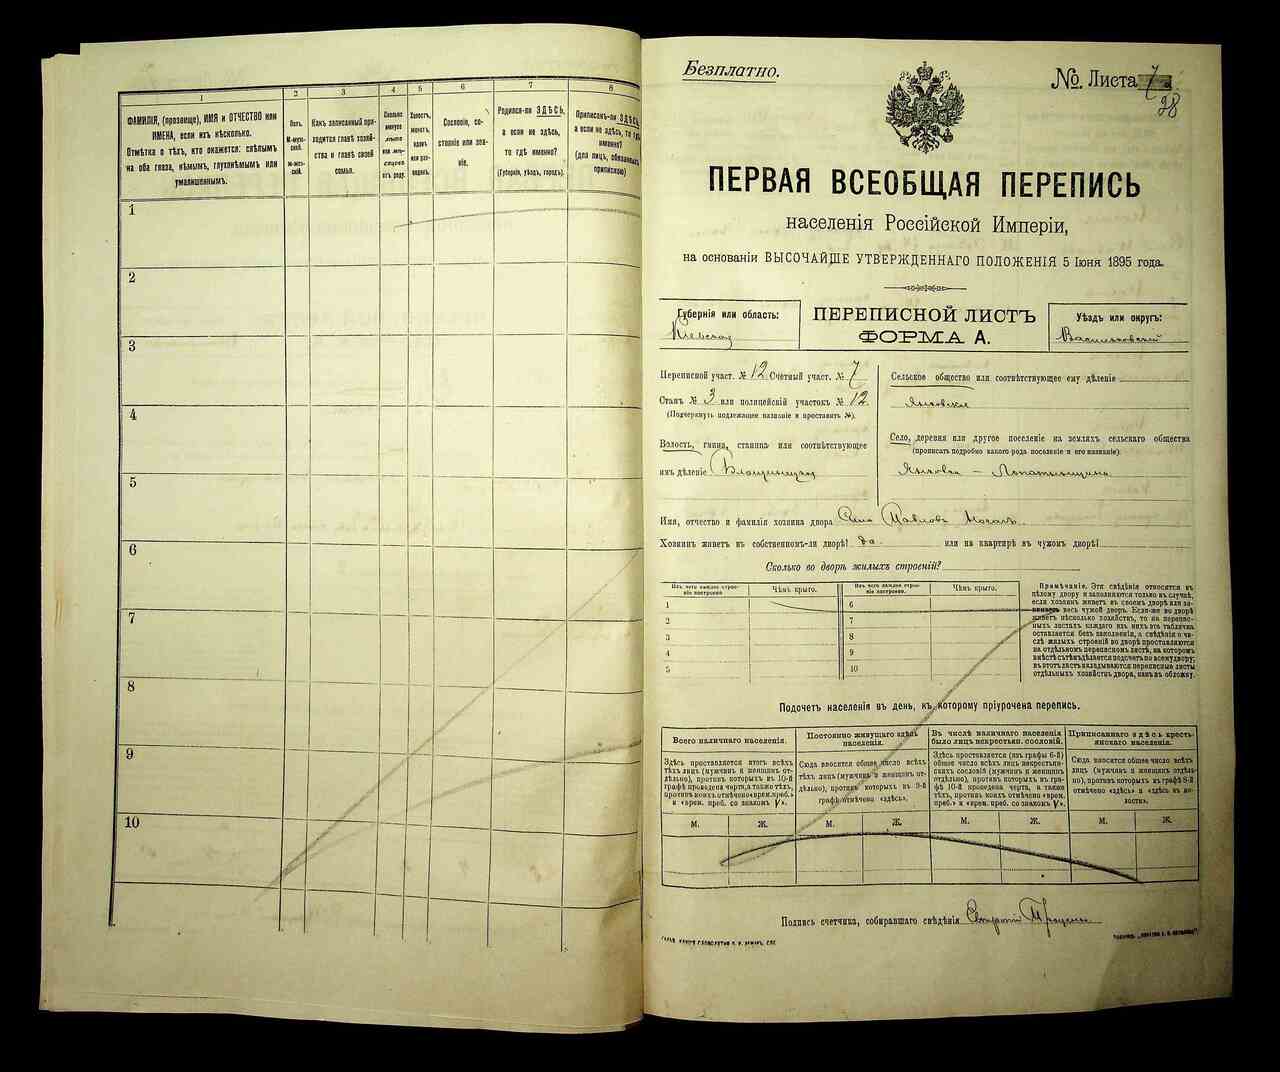 1
2
3
4
5
6
7
8
ФАМИЛІЯ, (прозвище), ИМЯ и ОТЧЕСТВО или
ИМЕНА, если ихъ нѣсколько.
Отмѣтка о тѣхъ, кто окажется: слѣпымъ
на оба глаза, нѣмымъ, глухонѣмымъ или
умалишеннымъ.
Полъ.
М-мужской.
Ж-женскій.
Какъ записанный приходится
главѣ хозяйства
и главѣ своей
семьи.
Сколько
минуло
лѣтъ
или мѣсяцевъ
отъ роду.
Холостъ,
женатъ,
вдовъ
или разведенъ.
Сословіе, состояніе
или званіе.
Родился-ли ЗДѢСЬ,
а если не здѣсь,
то гдѣ именно?
(Губернія, уѣздъ, городъ).
Приписанъ-ли ЗДѢСЬ,
а если не здѣсь, то гдѣ
именно?
(для лицъ, обязанныхъ
припискою)
1
2
3
4
5
6
7
8
9
10
Безплатно.
№ Листа 7
28
ПЕРВАЯ ВСЕОБЩАЯ ПЕРЕПИСЬ
населенія Россійской Имперіи,
на основаніи ВЫСОЧАЙШЕ УТВЕРЖДЕННАГО ПОЛОЖЕНІЯ 5 Іюня 1895 года.
Губернія или область:
Кіевская
ПЕРЕПИСНОЙ ЛИСТЪ
ФОРМА А.
Уѣздъ или округъ:
Васильковскій
Переписной участ. № 12 Счетный участ. № 7
Станъ № 3 или полицейскій участокъ № 12
(Подчеркнуть подлежащее названіе и проставить №).
Волость, гмина, станица или соотвѣтствующее
имъ дѣленіе
Сельское общество или соотвѣтствующее ему дѣленіе
Село, деревня или другое поселеніе на земляхъ сельскаго общества
(прописать подробно какого рода поселеніе и его названіе):
Имя, отчество и фамилія хозяина двора Павловъ
Хозяинъ живетъ въ собственномъ-ли дворѣ? да. или на квартирѣ въ чужомъ дворѣ?
Сколько во дворѣ жилыхъ строеній?
Изъ чего каждое строеніе построено.
Чѣмъ крыто.
Изъ чего каждое строеніе построено.
Чѣмъ крыто.
1
2
3
4
5
6
7
8
9
10
Примѣчаніе. Эти свѣдѣнія относятся къ
цѣлому двору и заполняются только въ случаѣ,
если хозяинъ живетъ въ своемъ дворѣ или занимаетъ
весь чужой дворъ. Если-же во дворѣ
живетъ нѣсколько хозяйствъ, то на переписныхъ
листахъ каждаго изъ нихъ эта табличка
оставляется безъ заполненія, а свѣдѣнія о числѣ
жилыхъ строеній во дворѣ проставляются
на отдѣльномъ переписномъ листѣ, на которомъ
вмѣстѣ съ тѣмъ дѣлается подсчетъ по всему двору;
въ этотъ листъ вкладываются переписные листы
отдѣльныхъ хозяйствъ двора, какъ въ обложку.
Подсчетъ населенія въ день, къ которому пріурочена перепись.
Всего наличнаго населенія.
Постоянно живущаго здѣсь
населенія.
Въ числѣ наличнаго населенія
было лицъ некрестьян. сословій.
Приписаннаго здѣсь крестьянскаго
населенія.
Здѣсь проставляется итогъ всѣхъ
тѣхъ лицъ (мужчинъ и женщинъ отдѣльно),
противъ которыхъ въ 10-й
графѣ проведена черта, а также тѣхъ,
противъ коихъ отмѣчено «врем. преб.»
и «врем. преб. со знакомъ V».
Сюда вносится общее число всѣхъ
тѣхъ лицъ (мужчинъ и женщинъ отдѣльно),
противъ которыхъ въ 9-й
графѣ отмѣчено «здѣсь».
Здѣсь проставляется (изъ графы 6-й)
общее число всѣхъ лицъ некрестьянскихъ
сословій (мужчинъ и женщинъ
отдѣльно), противъ которыхъ въ графѣ
10-й проведена черта, а также
тѣхъ, противъ коихъ отмѣчено «врем.
преб.» и «врем. преб. со знакомъ V».
Сюда вносится общее число всѣхъ
лицъ (мужчинъ и женщинъ отдѣльно),
противъ которыхъ въ графѣ 8-й
отмѣчено «здѣсь» и «здѣсь въ волости».
М.
Ж.
М.
Ж.
М.
Ж.
М.
Ж.
Подпись счетчика, собиравшаго свѣдѣнія